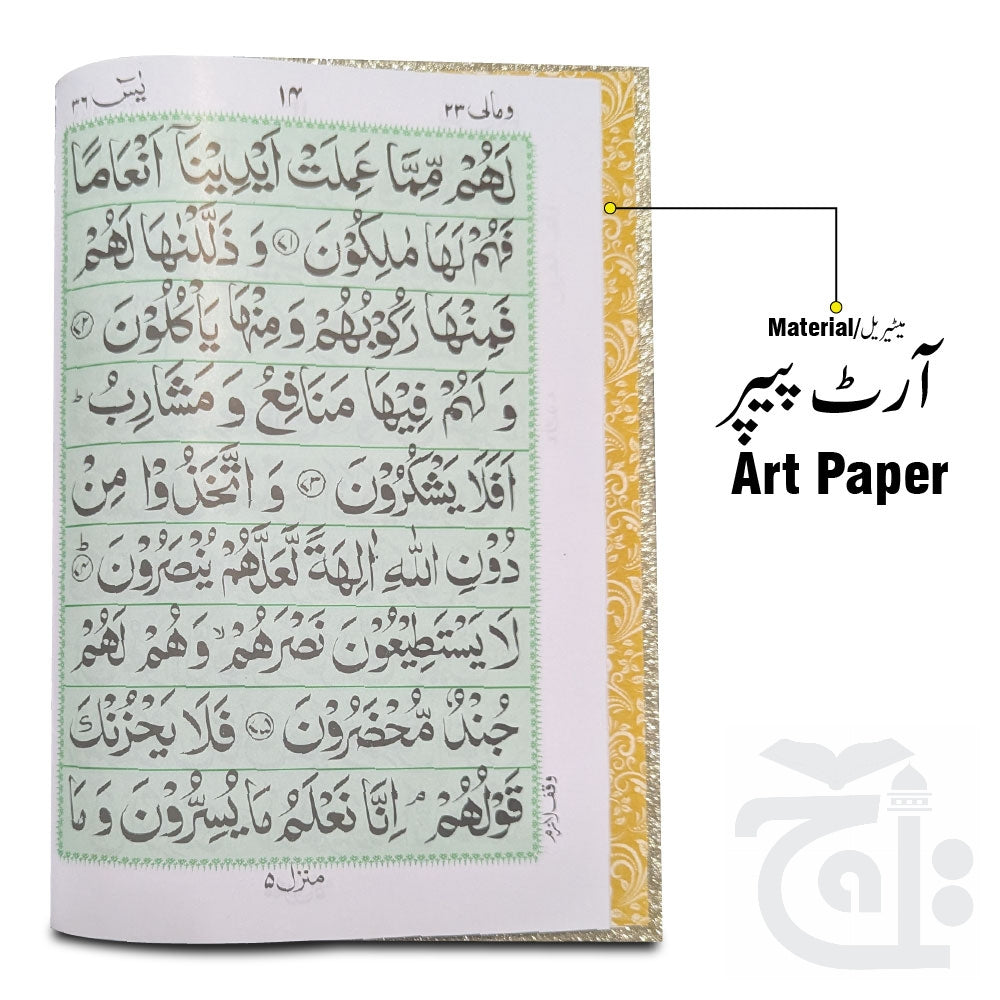 یٰسٓ ۳۶
۱۴
ومالی ۲۳
لَهُمْ مِّمَّا عَمِلَتْ اَيْدِيْنَاۤ اَنْعَامًا
فَهُمْ لَهَا مٰلِكُوْنَ ﴿۷۱﴾ وَ ذَلَّلْنٰهَا لَهُمْ
فَمِنْهَا رَكُوْبُهُمْ وَ مِنْهَا يَاْكُلُوْنَ ﴿۷۲﴾
وَ لَهُمْ فِيْهَا مَنَافِعُ وَ مَشَارِبُ ؕ
اَفَلَا يَشْكُرُوْنَ ﴿۷۳﴾ وَ اتَّخَذُوْا مِنْ
دُوْنِ اللّٰهِ اٰلِهَةً لَّعَلَّهُمْ يُنْصَرُوْنَ ﴿۷۴﴾ؕ
لَا يَسْتَطِيْعُوْنَ نَصْرَهُمْ ۙ وَ هُمْ لَهُمْ
جُنْدٌ مُّحْضَرُوْنَ ﴿۷۵﴾ فَلَا يَحْزُنْكَ
قَوْلُهُمْ ۘ اِنَّا نَعْلَمُ مَا يُسِرُّوْنَ وَ مَا
وقف لازم
منزل ۵
Material/میٹیریل
آرٹ پیپر
Art Paper